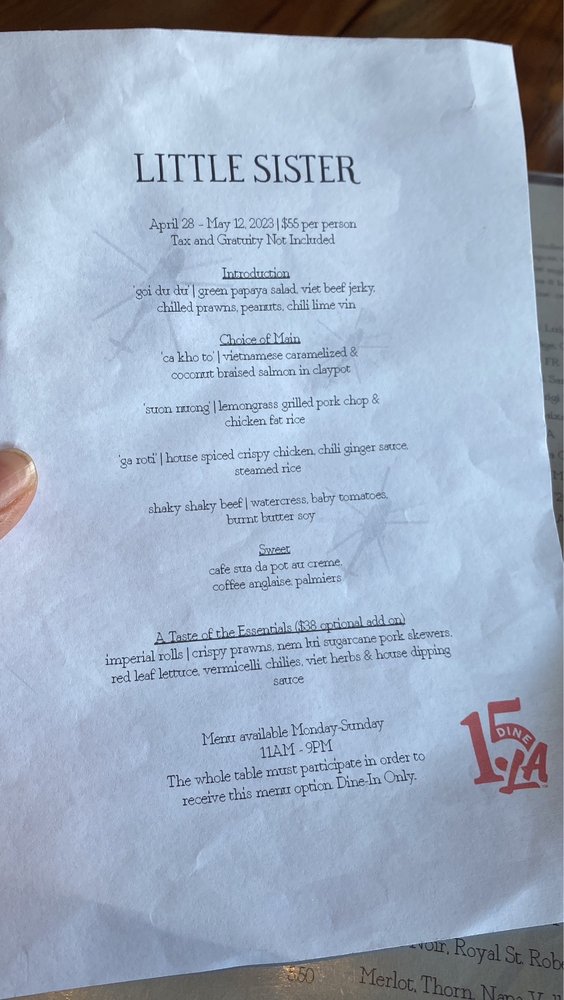 LITTLE SISTER
April 28 - May 12, 2023 | $55 per person
Tax and Gratuity Not Included
Introduction
'goi du du' | green papaya salad, viet beef jerky,
chilled prawns, peanuts, chili lime vin
Choice of Main
'ca kho to' | vietnamese caramelized &
coconut braised salmon in claypot
'suon nuong' | lemongrass grilled pork chop &
chicken fat rice
'ga roti' | house spiced crispy chicken, chili ginger sauce,
steamed rice
shaky shaky beef | watercress, baby tomatoes,
burnt butter soy
Sweet
cafe sua da pot au creme,
coffee anglaise, palmiers
A Taste of the Essentials ($38 optional add on)
imperial rolls | crispy prawns, nem lui sugarcane pork skewers,
red leaf lettuce, vermicelli, chilies, viet herbs & house dipping
sauce
Menu available Monday-Sunday
11AM - 9PM
The whole table must participate in order to
receive this menu option. Dine-In Only.
15
DINE
LA
Noir, Royal St. Robe
650 Merlot, Thorn, Napa